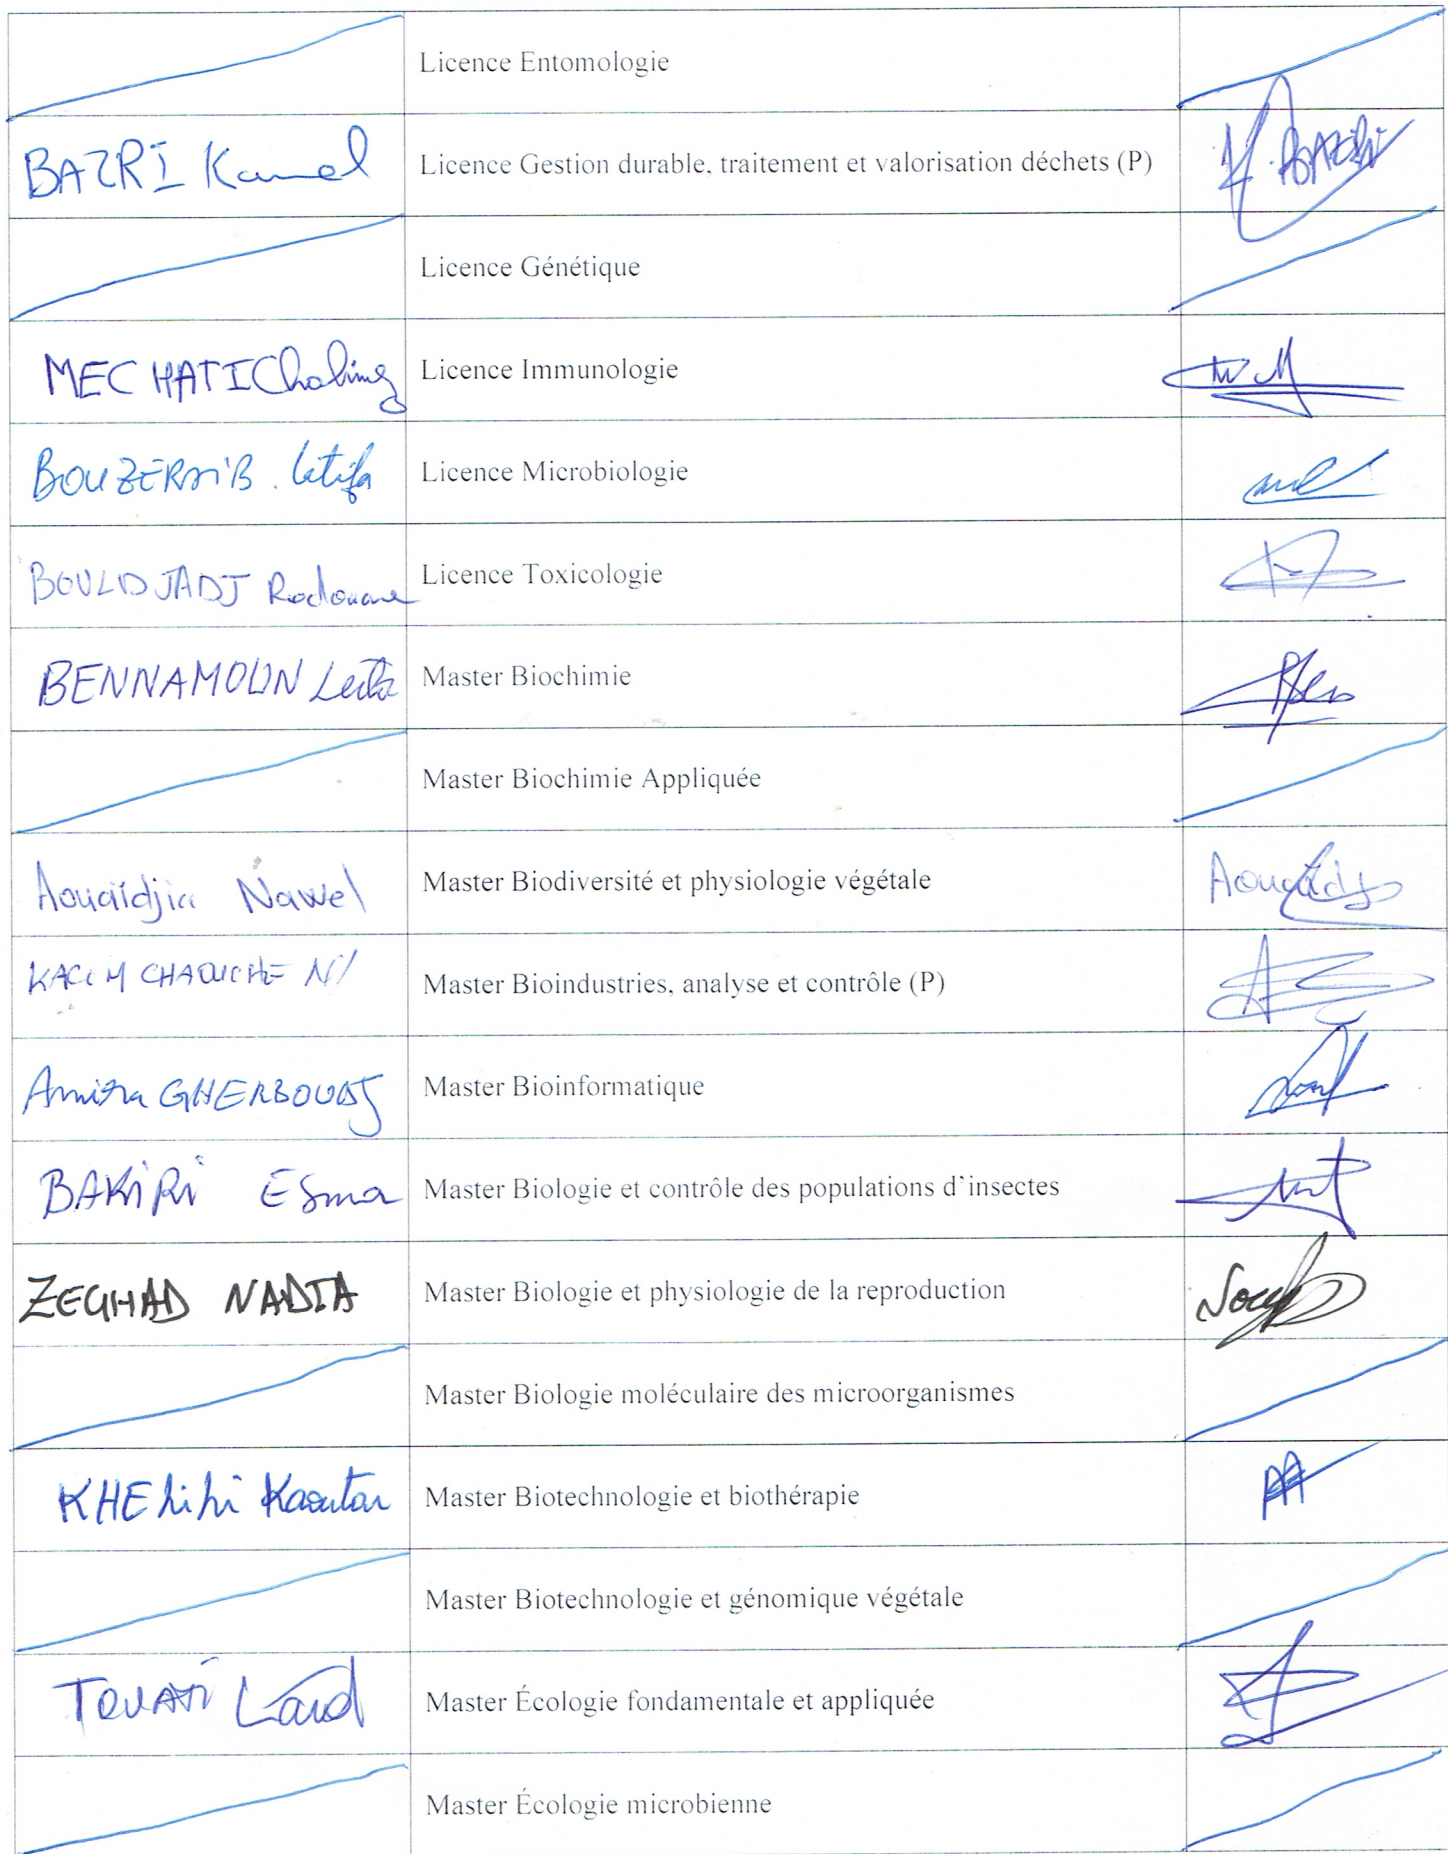 Licence Entomologie
BAZRI Kamel Licence Gestion durable, traitement et valorisation déchets (P) K. BAZRI
Licence Génétique
MECHATI Chahinez Licence Immunologie
BOUZERAIB. Latifa Licence Microbiologie
BOULDJADJ Redouane Licence Toxicologie
BENNAMOUN Leila Master Biochimie
Master Biochimie Appliquée
Aouaïdjia Nawel Master Biodiversité et physiologie végétale
KACEM CHAOUCHE N/ Master Bioindustries, analyse et contrôle (P)
Amira GHERBOUDJ Master Bioinformatique
BAKIRI Esma Master Biologie et contrôle des populations d'insectes
ZEGHAD NADIA Master Biologie et physiologie de la reproduction
Master Biologie moléculaire des microorganismes
KHELIFI Kaoutar Master Biotechnologie et biothérapie
Master Biotechnologie et génomique végétale
TOUATI Laid Master Écologie fondamentale et appliquée
Master Écologie microbienne